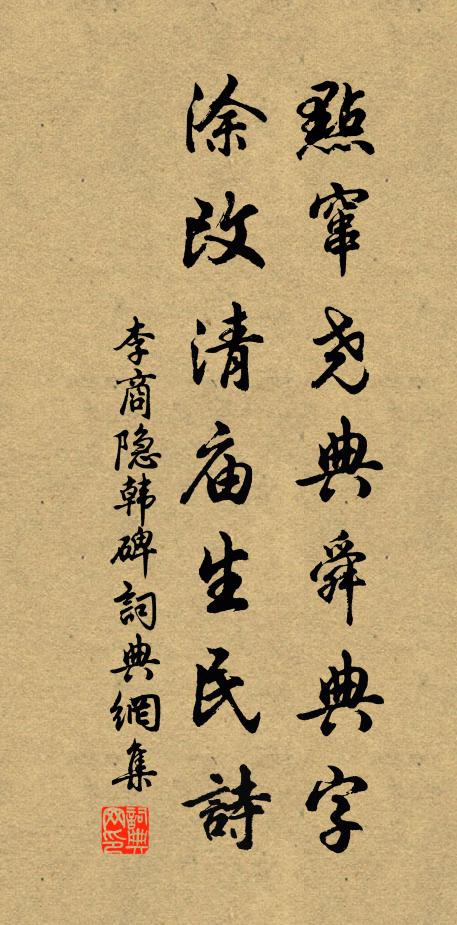 點竄尧典舜典字
涂改清庙生民詩
李商隐韩碑詞典網集
詞典网印